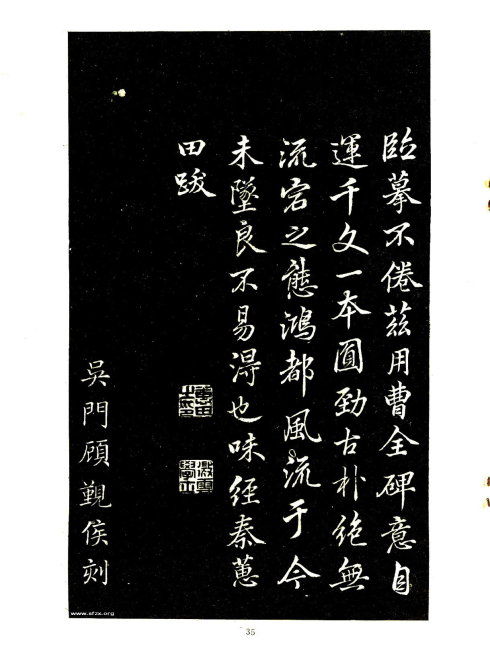 臨摹不倦茲用曹全碑意自
運千文一本圓勁古朴絶無
流宕之態鴻都風流于今
未墜良不易得也味經秦蕙
田跋
吳門顧覲侯刻
www.sfzx.org
35